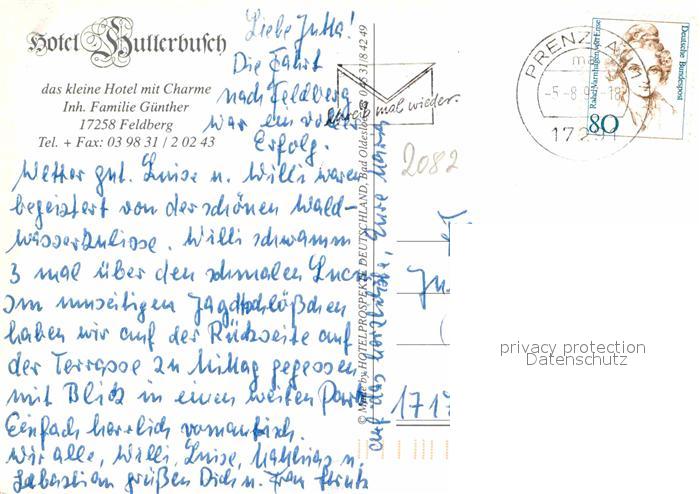 Hotel Hullerbusch
das kleine Hotel mit Charme
Inh. Familie Günther
17258 Feldberg
Tel. + Fax: 03 98 31 / 2 02 43
Liebe Jutta!
Die Fahrt
nach Feldberg
war ein voller
Erfolg.
Wetter gut. Luise u. Willi waren
begeistert von der schönen Wald-
Willi schwamm
3 mal über den schmalen Luzin
Im Jagdschlößchen
haben wir auf der Rückseite auf
der Terrasse zu Mittag gegessen
mit Blick in einen weiten Park
Einfach herrlich romantisch.
Wir alle, Willi, Luise, Mathias u.
Sebastian grüßen Dich u. Frau
auf das herzlichste, Eure
© Made by HOTELPROSPEKTE DEUTSCHLAND, Bad Oldesloe
mal wieder.
2082
PRENZLAU 1
80
Rahel Varnhagen von Ense
Deutsche Bundespost
privacy protection
Datenschutz